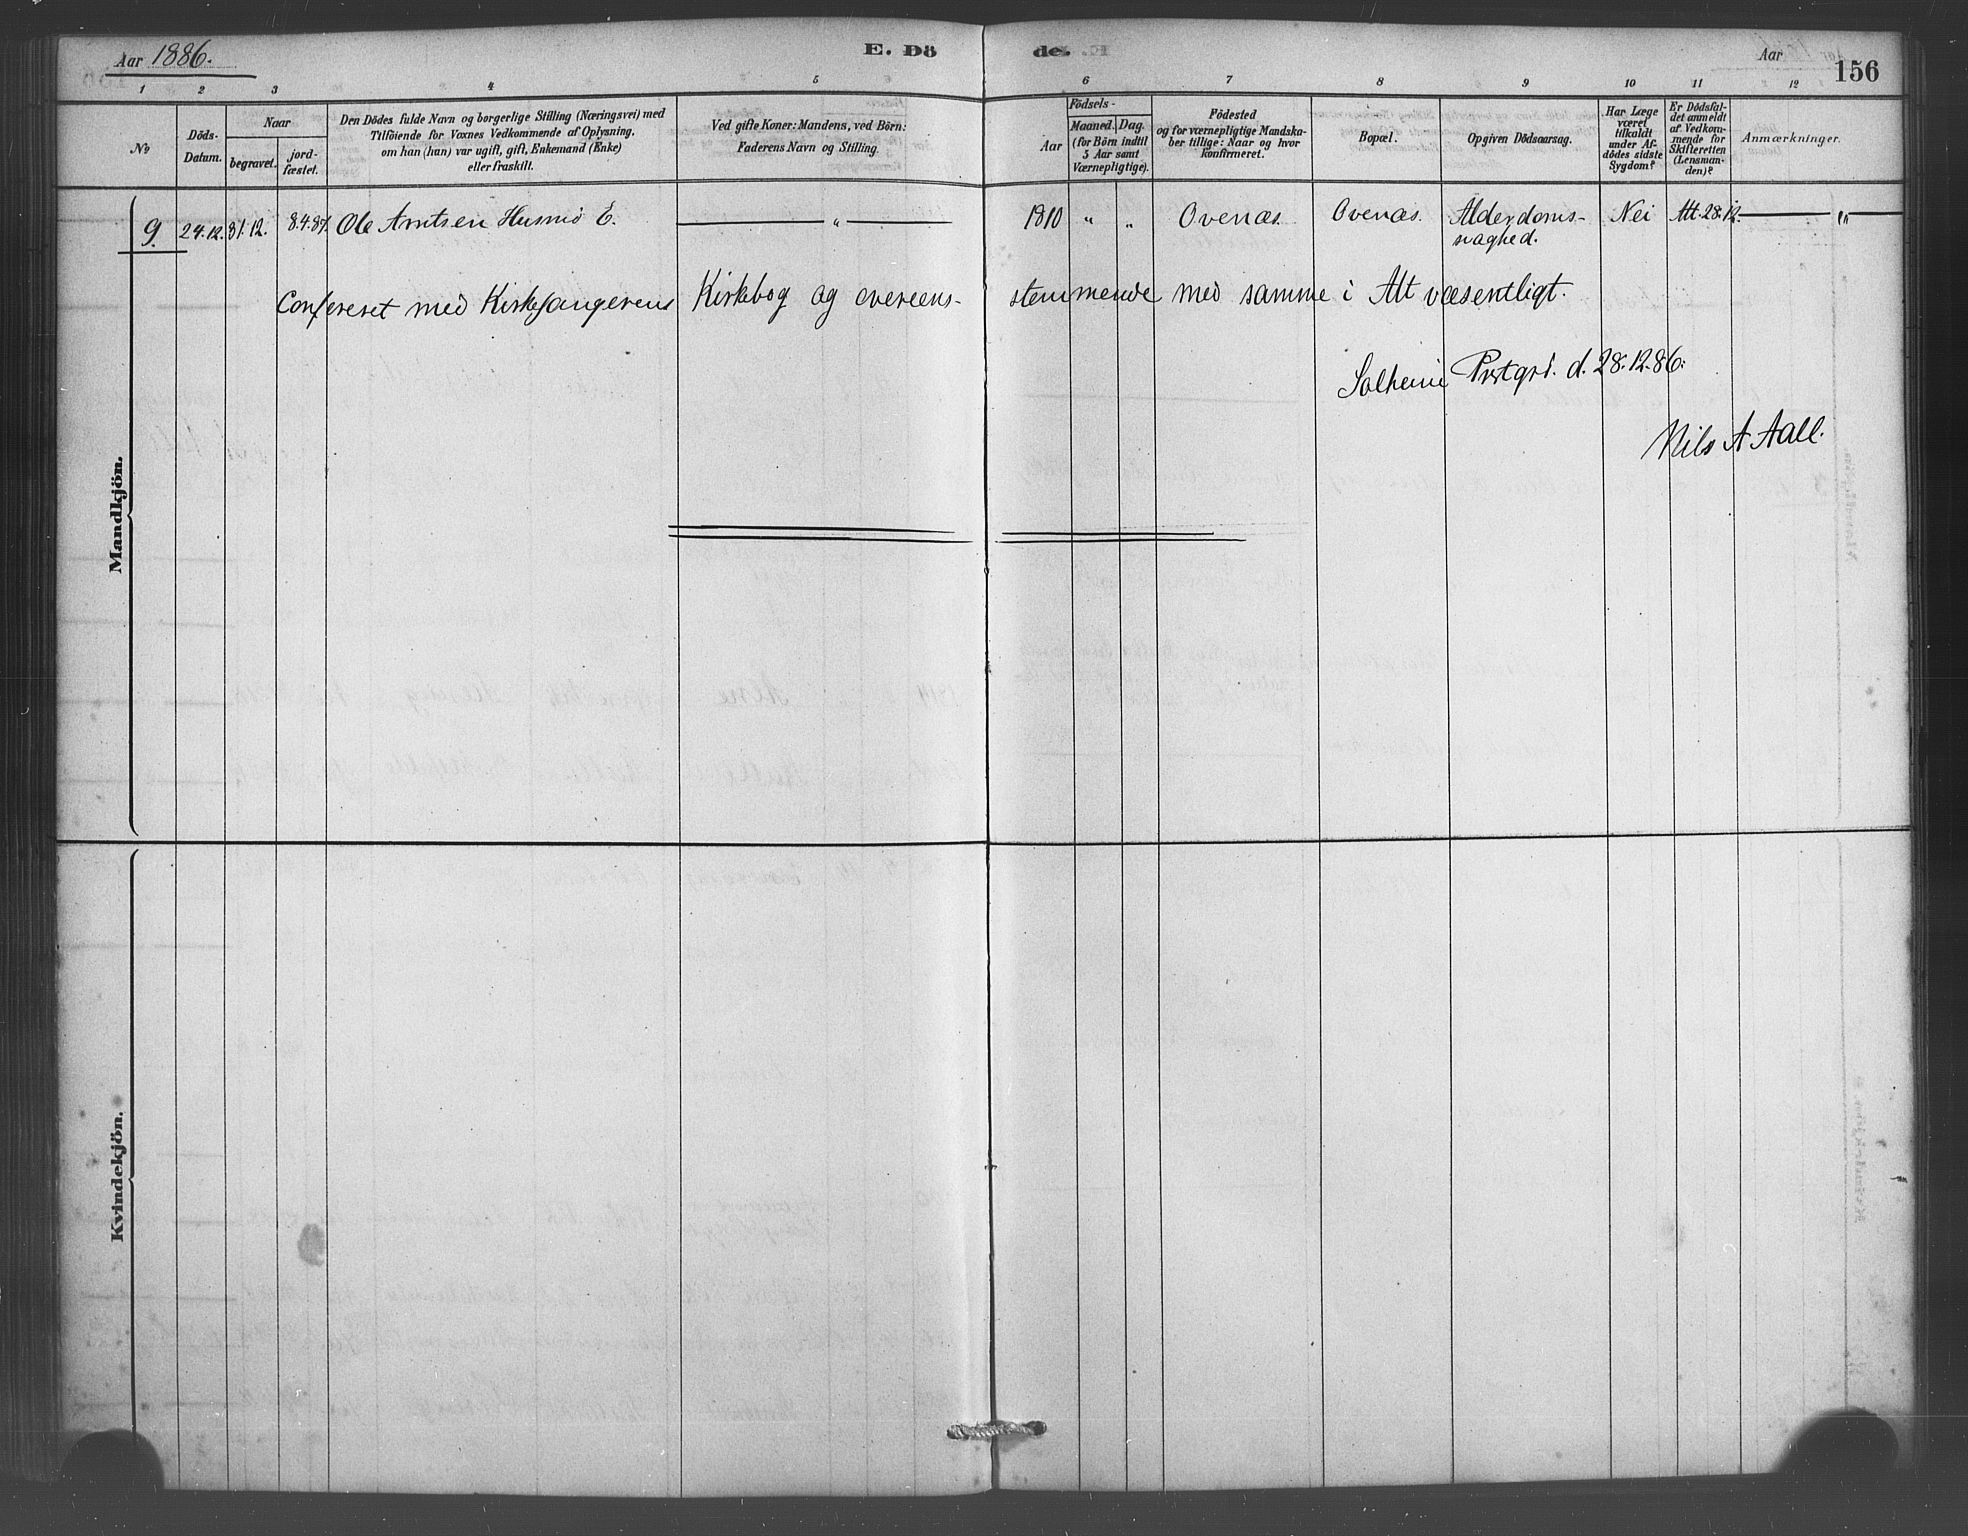 Aar 1886.
E. Dö
de.
Aar
156
1 2 3 4 5 6 7 8 9 10 11 12
No
Döds-
Datum.
Naar
begravet.
jord-
fæstet.
Den Dödes fulde Navn og borgerlige Stilling (Næringsvei) med
Tilföiende for Voxnes Vedkommende af Oplysning,
om han (hun) var ugift, gift, Enkemand (Enke)
eller fraskilt.
Ved gifte Koner: Mandens, ved Börn:
Faderens Navn og Stilling.
Födsels-
Aar
Maaned.
Dag.
(for Börn indtil
5 Aar samt
Værnepligtige).
Födested
og for værnepligtige Mandska-
ber tillige: Naar og hvor
konfirmeret.
Bopæl.
Opgiven Dödsaarsag.
Har Læge
været
tilkaldt
under Af-
dödes sidste
Sygdom?
Er Dödsfal-
det anmeldt
af Vedkom-
mende for
Skifteretten
(Lensman-
den)?
Anmærkninger.
Mandkjön.
9. 24.12. 31.12. 8.4.87. Ole Arntsen Husmd E. — „ — 1810 „ „ Ovenæs. Ovenæs. Alderdoms- Nei Att. 28.12. — „ —
svaghed.
Confereret med Kirkesangerens Kirkebog og overeens- stemmende med samme i Alt væsentligt.
Solheim Prstgrd. d. 28.12.86.
Nils A Aall.
Kvindekjön.